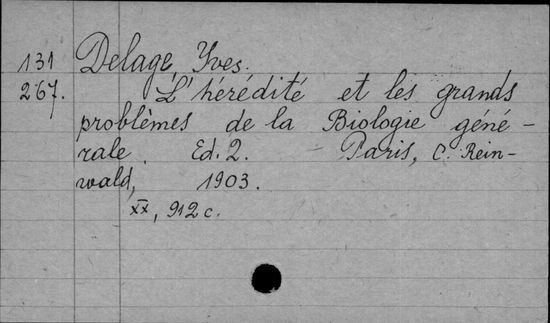 131 Delage, Yves.
267. L'hérédité et les grands
problèmes de la Biologie géné-
rale. Ed. 2. - Paris, C. Rein-
wald, 1903.
XX, 912 c.